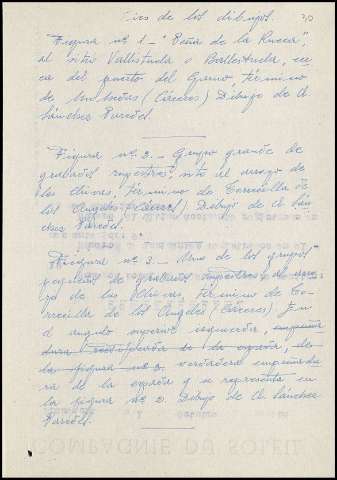 Pies de los dibujos. 30
Figura nº. 1 - "Peña de la Rueca",
al sitio Vallestuda o Ballestuda, cer-
ca del puerto del Gamo, término
de (Cáceres) Dibujo de A.
Sánchez Paredes.
Figura nº. 2. - Grupo grande de
grabados rupestres, sito al arroyo de
las Chivas, término de Torrecilla de
los Angeles (Cáceres) Dibujo de A. Sán-
chez Paredes.
Figura nº. 3 - Uno de los grupos
pequeños de grabados rupestres, al arro-
yo de las Chivas, término de To-
rrecilla de los Angeles (Cáceres). En
el angulo superior izquierda, empuña-
dura de la espada, de
la figura nº. 2. verdadera empuñadu-
ra de la espada q se representa en
la figura nº 2. Dibujo de A. Sánchez
Paredes.
COMPAGNIE DU SOLEIL